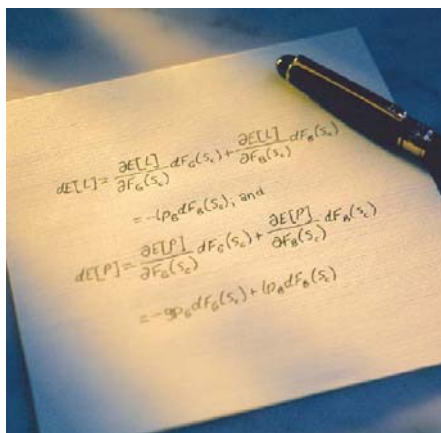 dE[L] = ∂E[L]/∂F_G(S_c) dF_G(S_c) + ∂E[L]/∂F_B(S_c) dF_B(S_c)
= -lp_B dF_B(S_c), and
dE[P] = ∂E[P]/∂F_G(S_c) dF_G(S_c) + ∂E[P]/∂F_B(S_c) dF_B(S_c)
= -gp_G dF_G(S_c) + lp_B dF_B(S_c)